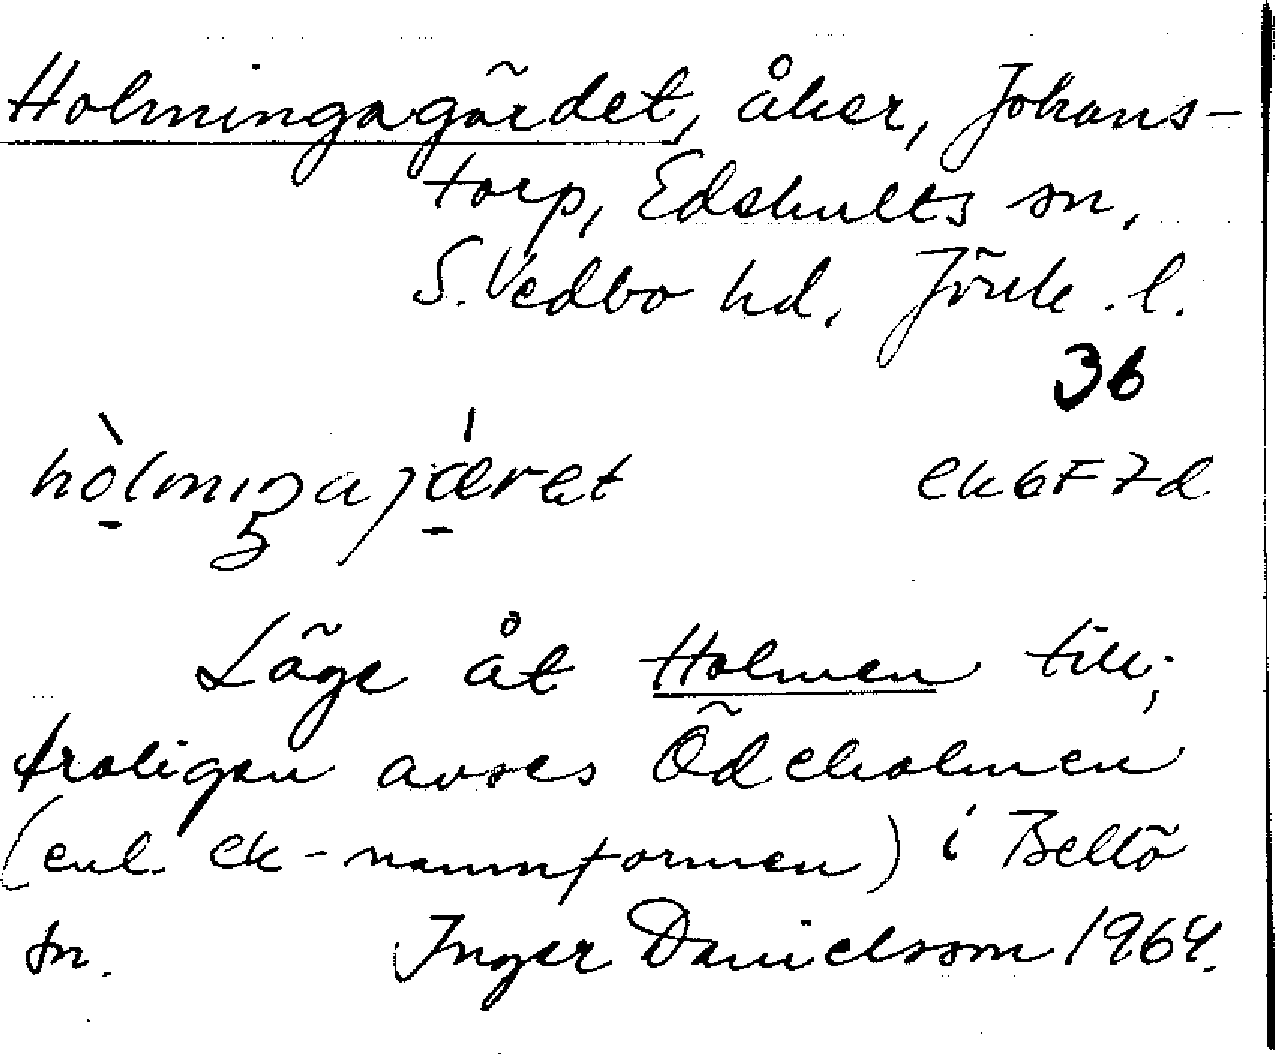 Holmingagärdet, åker, Johans-
torp, Edshults sn,
S. Vedbo hd, Jönk. l.
36
ek 6F7d
Läge åt Holmen till;
troligen avses Ödeholmen
(enl. ek-namnformen) i Bellö
sn. Inger Danielsson 1964.